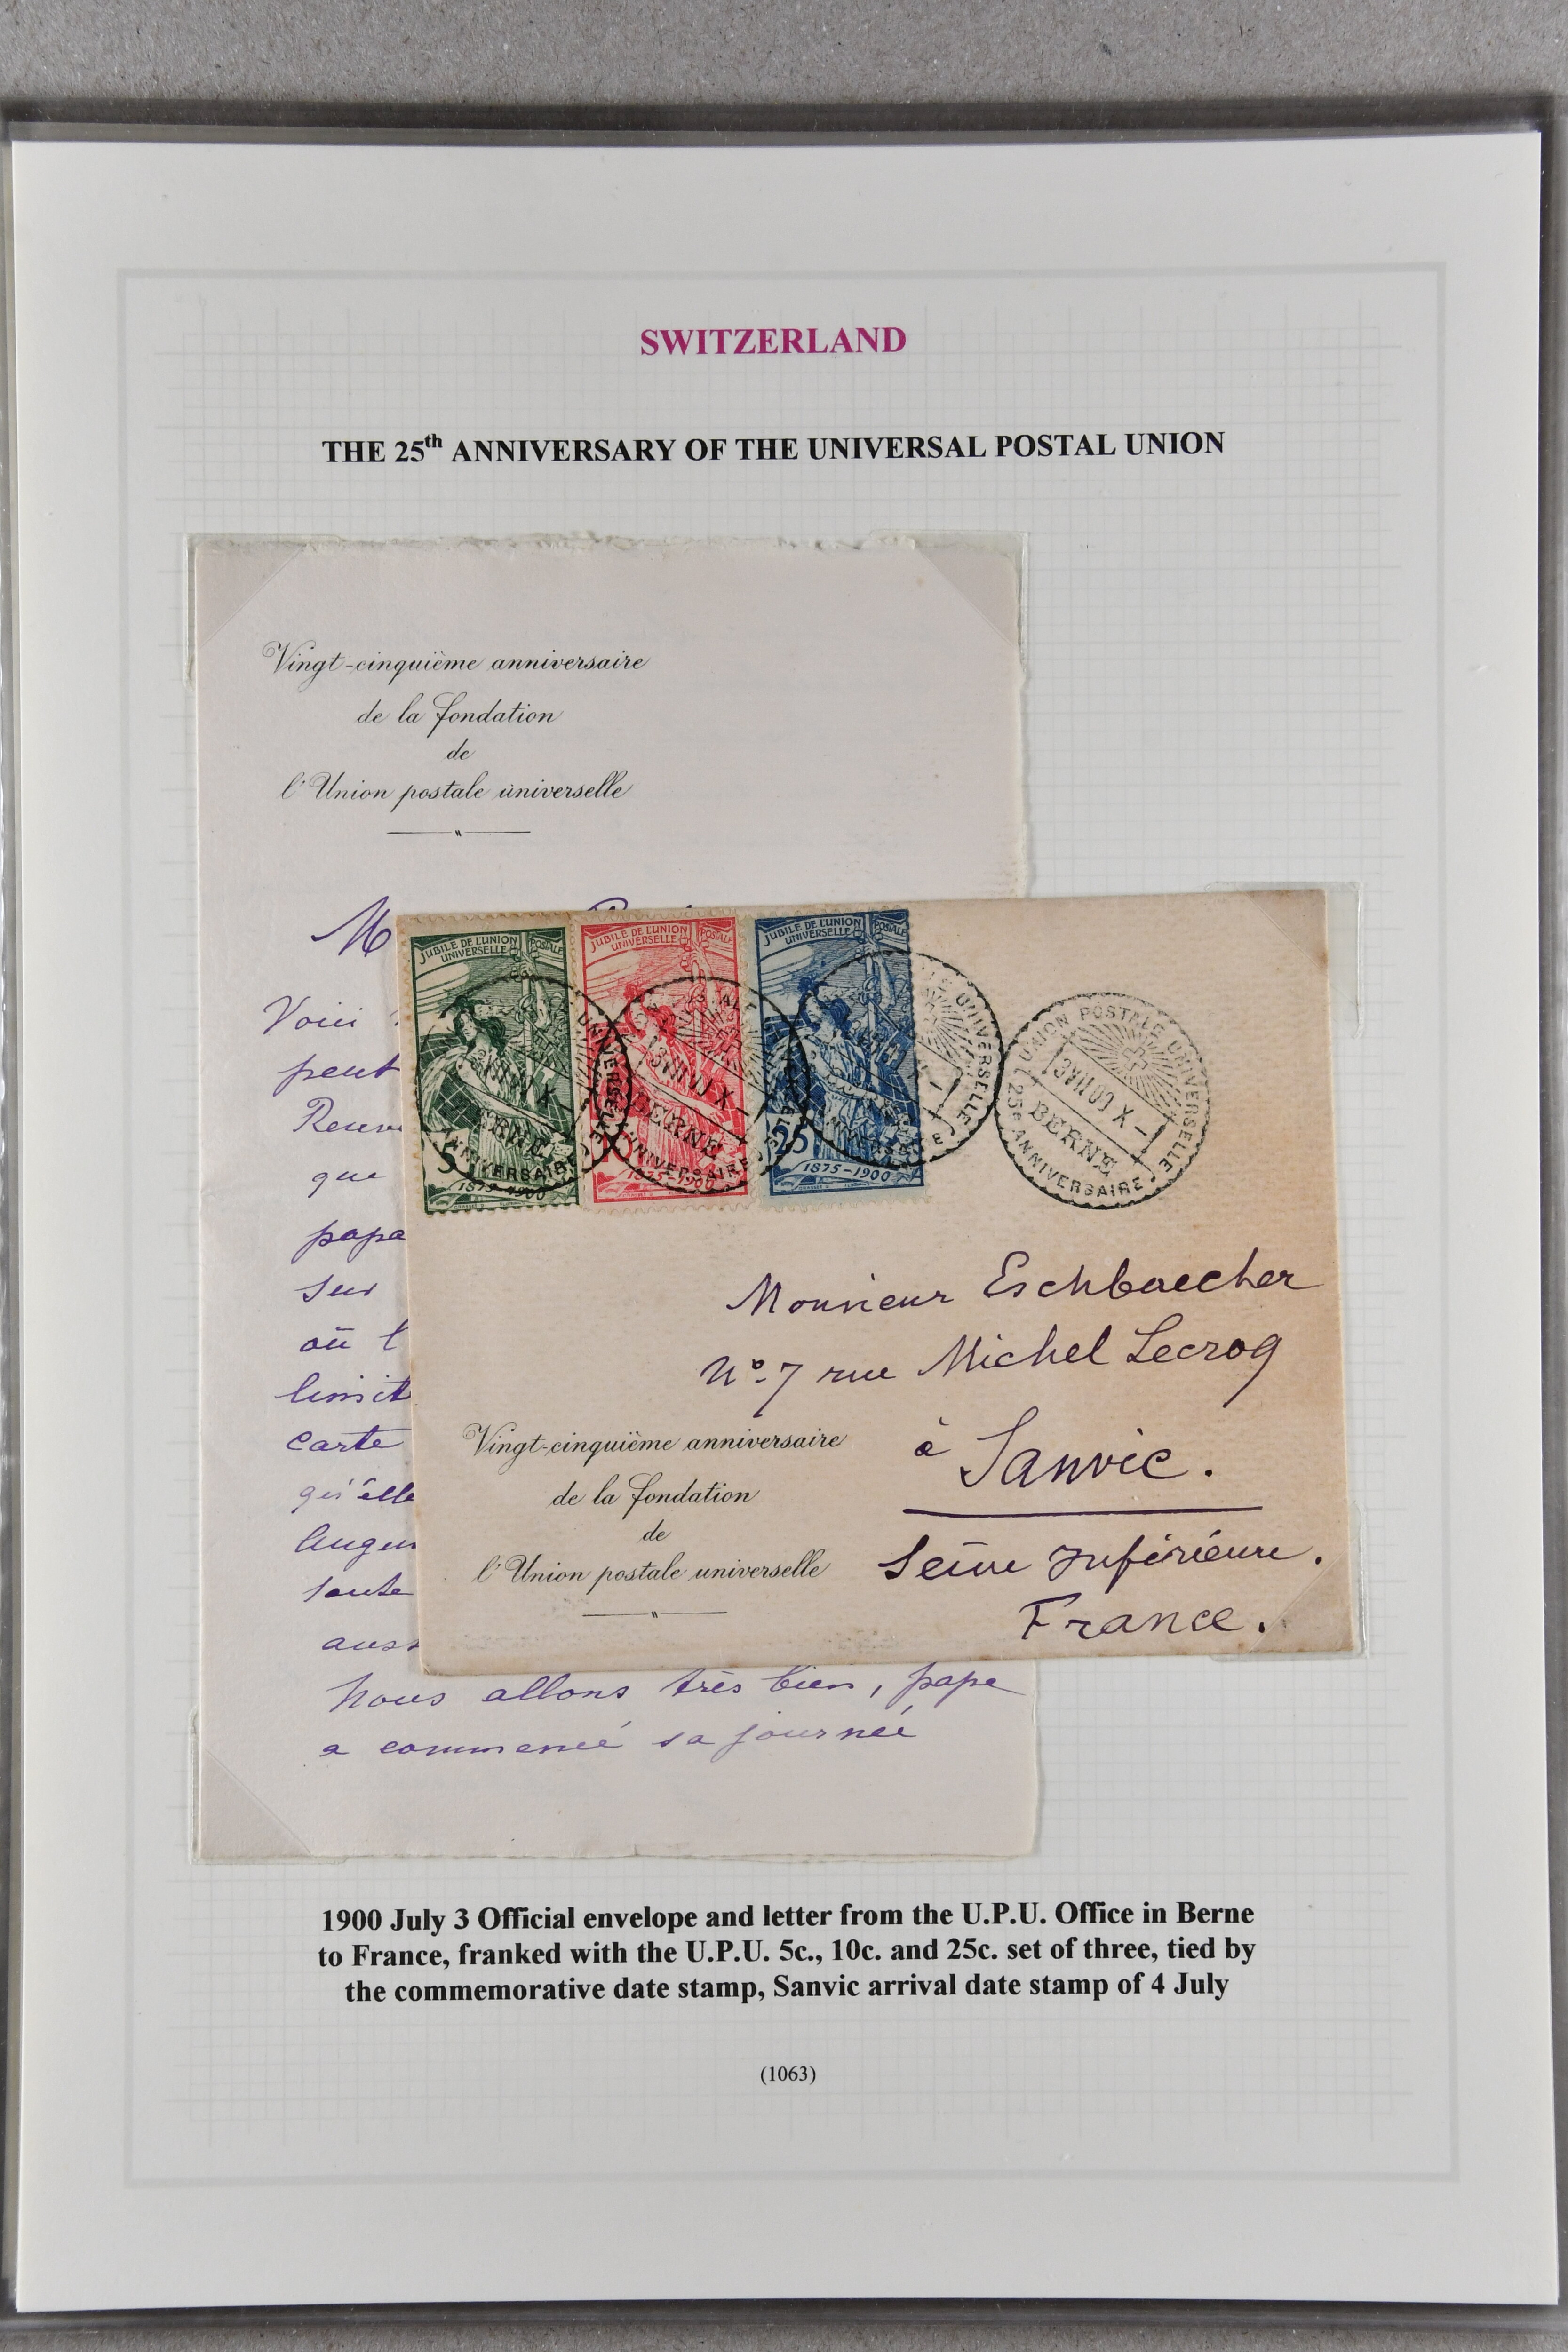 SWITZERLAND
THE 25th ANNIVERSARY OF THE UNIVERSAL POSTAL UNION
Vingt-cinquième anniversaire
de la fondation
de
l'Union postale universelle
M
Voici
peut
que
papa
sur
où l
limit
carte
qu'elle
toute
auss
nous allons très bien, papa
a commencé sa journée
JUBILÉ DE L'UNION POSTALE
UNIVERSELLE
5
1875-1900
JUBILÉ DE L'UNION POSTALE
UNIVERSELLE
10
1875-1900
JUBILÉ DE L'UNION POSTALE
UNIVERSELLE
25
1875-1900
UNION POSTALE UNIVERSELLE
3 VII 00 X –
BERNE
25e ANNIVERSAIRE
Monsieur Eschbaecher
No. 7 rue Michel Lecrog
à Sanvic.
Seine Inférieure.
France.
Vingt-cinquième anniversaire
de la fondation
de
l'Union postale universelle
1900 July 3 Official envelope and letter from the U.P.U. Office in Berne
to France, franked with the U.P.U. 5c., 10c. and 25c. set of three, tied by
the commemorative date stamp, Sanvic arrival date stamp of 4 July
(1063)